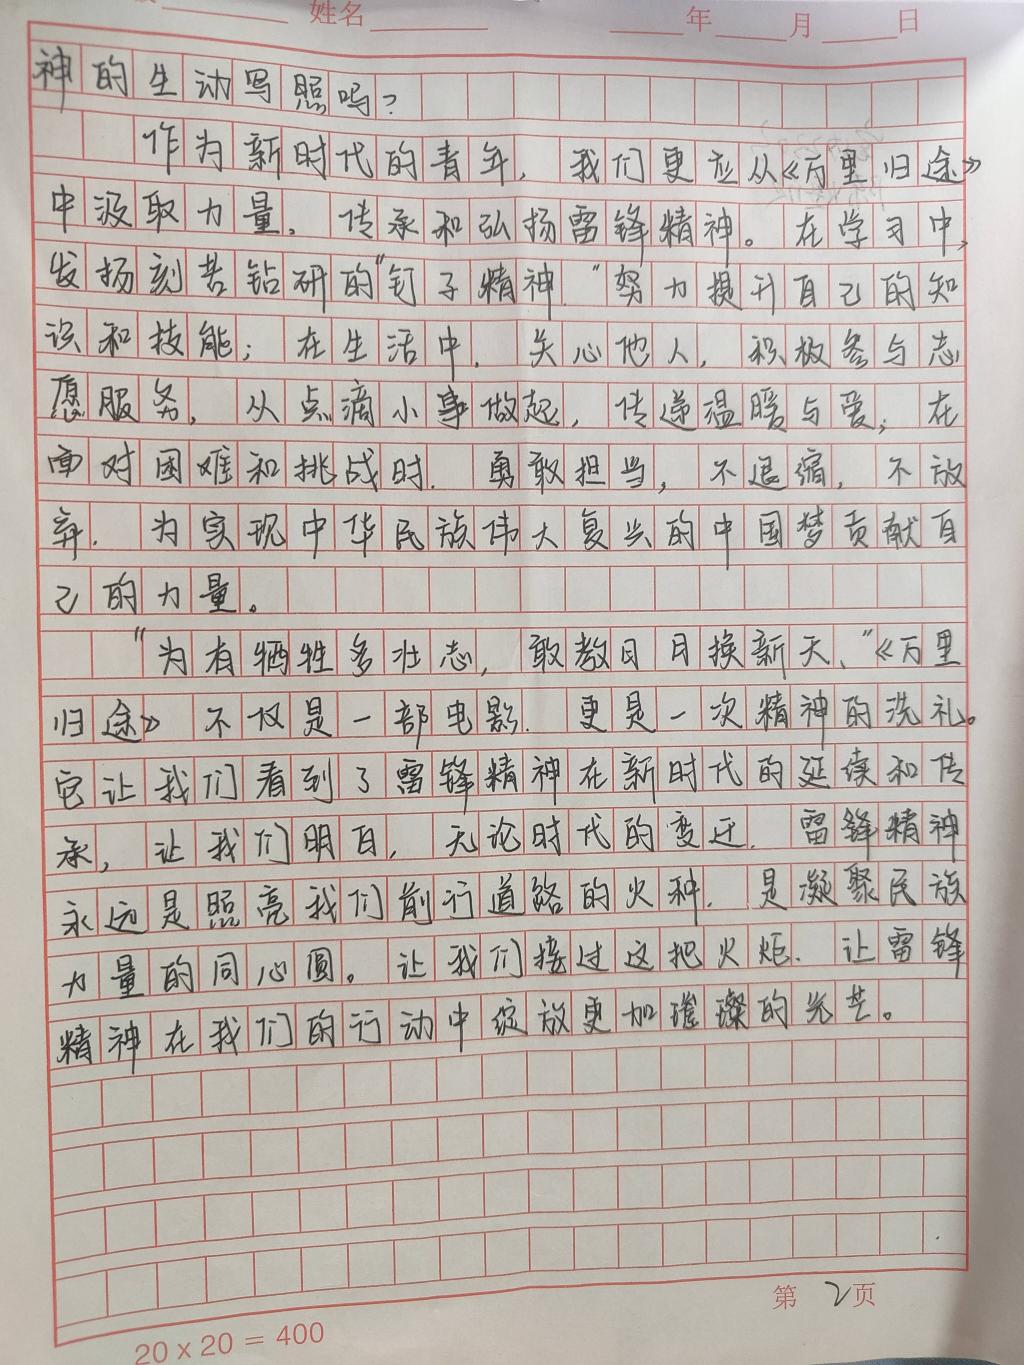 姓名 年 月 日
神的生动写照吗?
作为新时代的青年, 我们更应从《万里归途》
中汲取力量, 传承和弘扬雷锋精神。在学习中,
发扬刻苦钻研的"钉子精神"努力提升自己的知
识和技能; 在生活中, 关心他人, 积极参与志
愿服务, 从点滴小事做起, 传递温暖与爱; 在
面对困难和挑战时, 勇敢担当, 不退缩, 不放
弃, 为实现中华民族伟大复兴的中国梦贡献自
己的力量。
"为有牺牲多壮志, 敢教日月换新天、"《万里
归途》不仅是一部电影, 更是一次精神的洗礼。
它让我们看到了雷锋精神在新时代的延续和传
承, 让我们明白, 无论时代的变迁, 雷锋精神
永远是照亮我们前行道路的火种, 是凝聚民族
力量的同心圆。让我们接过这把火炬, 让雷锋
精神在我们的行动中绽放更加璀璨的光芒。
第 2 页
20 x 20 = 400